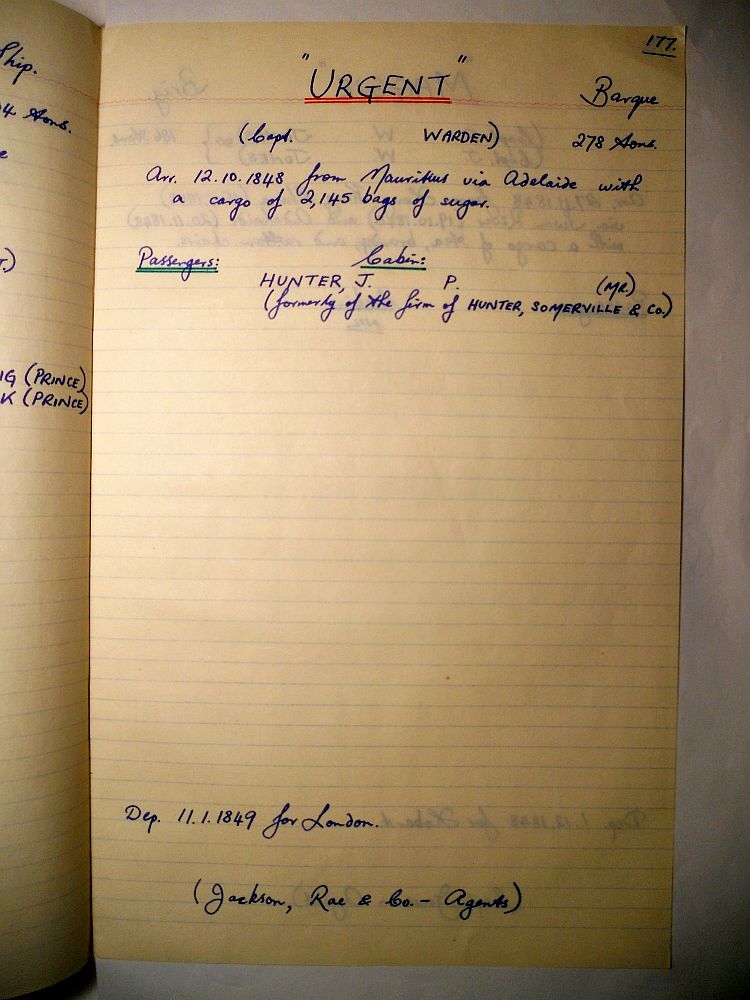 177.
"URGENT" Barque
(Capt. WARDEN) 278 tons.
Arr. 12.10.1848 from Mauritius via Adelaide with
a cargo of 2,145 bags of sugar.
Passengers: Cabin:
HUNTER, J. P. (MR.)
(formerly of the firm of HUNTER, SOMERVILLE & Co.)
Dep. 11.1.1849 for London.
(Jackson, Rae & Co. - Agents)
Ship.
4 tons.
IG (PRINCE)
K (PRINCE)